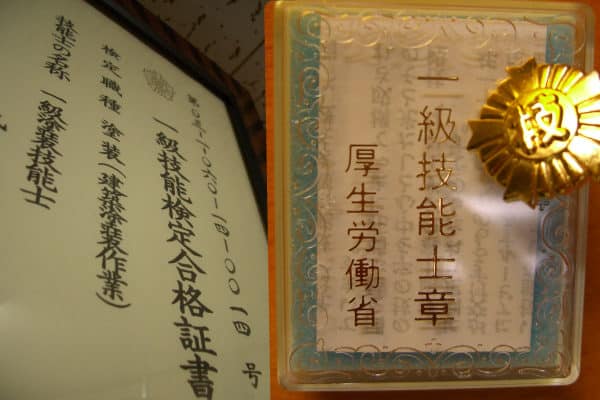 一級技能検定合格証書
検定職種 塗装(建築塗装作業)
技能士の名称 一級塗装技能士
一級技能士章
厚生労働省
技